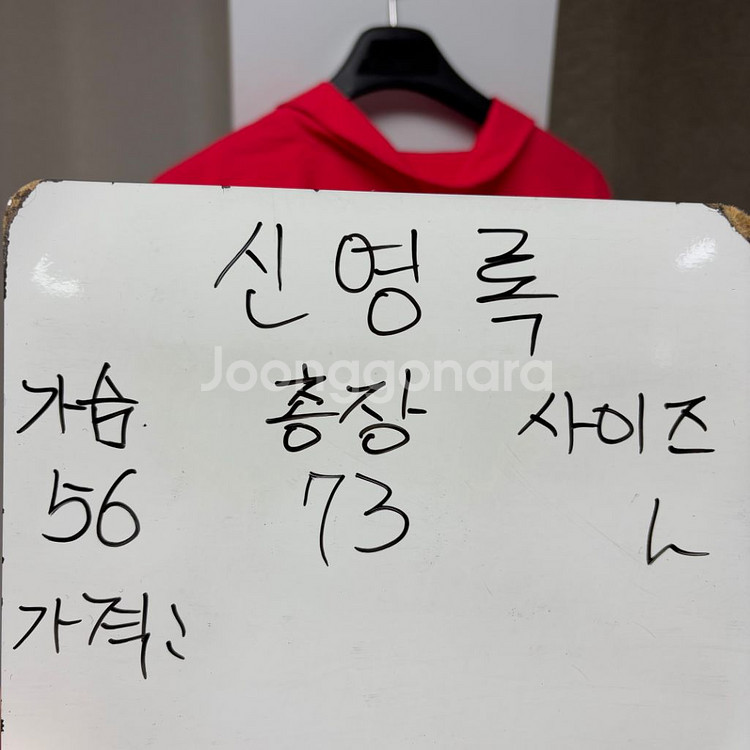 신영록
Joonggonara
가슴. 총장 사이즈
56 73 L
가격: